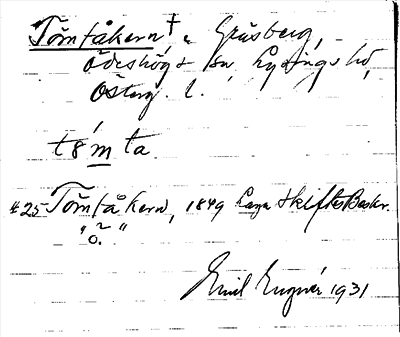 Tömtåkern † Gräsberg,
Ödeshögs sn, Lysings hd,
Österg. l.
tö́mta
#25 Tömtåkern, 1849 Laga Skiftes Beskr.
"ö."
Emil Engnér 1931